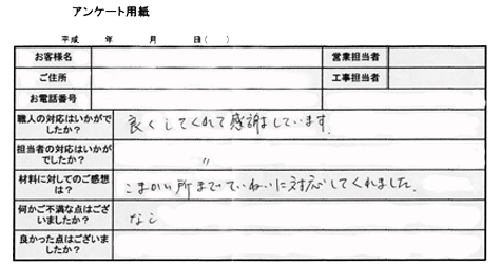 アンケート用紙
平成 年 月 日( )
お客様名 営業担当者
ご住所 工事担当者
お電話番号
職人の対応はいかがで
したか?
良くしてくれて感謝しています。
担当者の対応はいかが
でしたか?
〃
材料に対してのご感想
は?
こまかい所までていねいに対応してくれました。
何かご不満な点はござ
いましたか?
なし
良かった点はございま
したか?